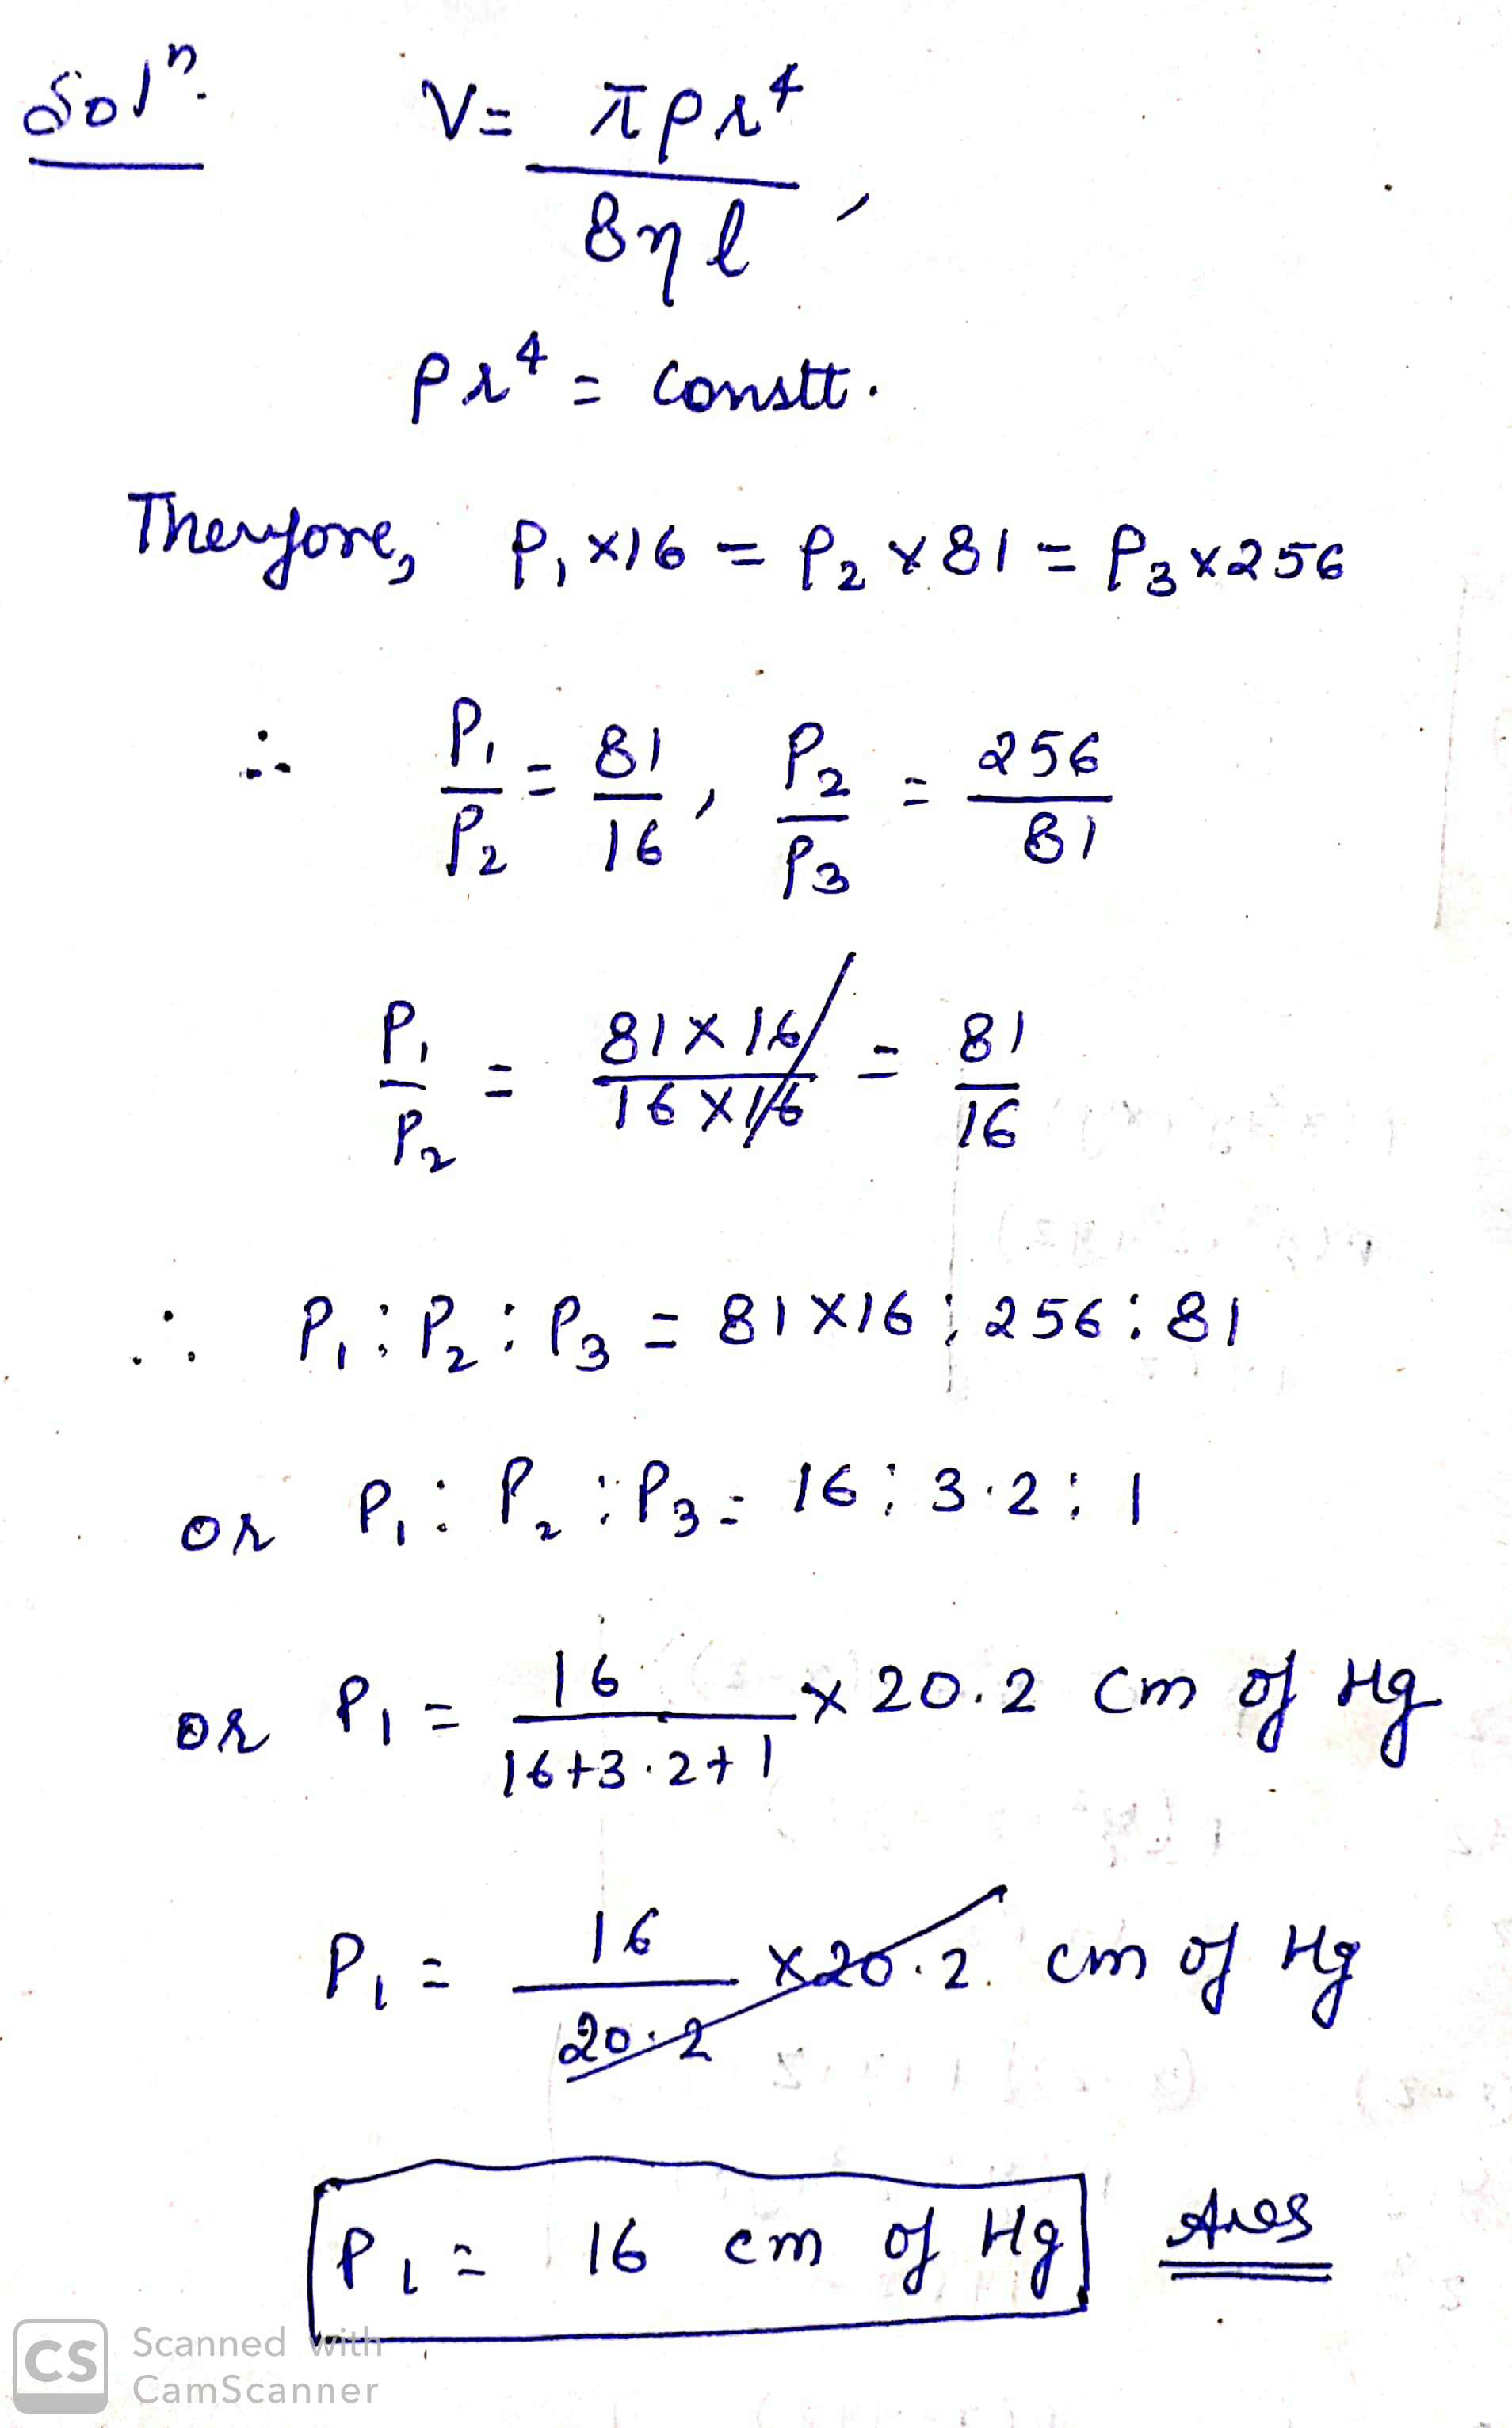 Solⁿ. V = πpr⁴ / 8ηl ,
pr⁴ = constt.
Therefore, P₁ × 16 = P₂ × 81 = P₃ × 256
∴ P₁/P₂ = 81/16 , P₂/P₃ = 256/81
P₁/P₂ = 81×16 / 16×16 = 81/16
∴ P₁ : P₂ : P₃ = 81×16 : 256 : 81
or P₁ : P₂ : P₃ = 16 : 3.2 : 1
or P₁ = 16 / 16+3.2+1 × 20.2 cm of Hg
P₁ = 16 / 20.2 × 20.2 cm of Hg
P₁ = 16 cm of Hg Ans
CS Scanned with
CamScanner